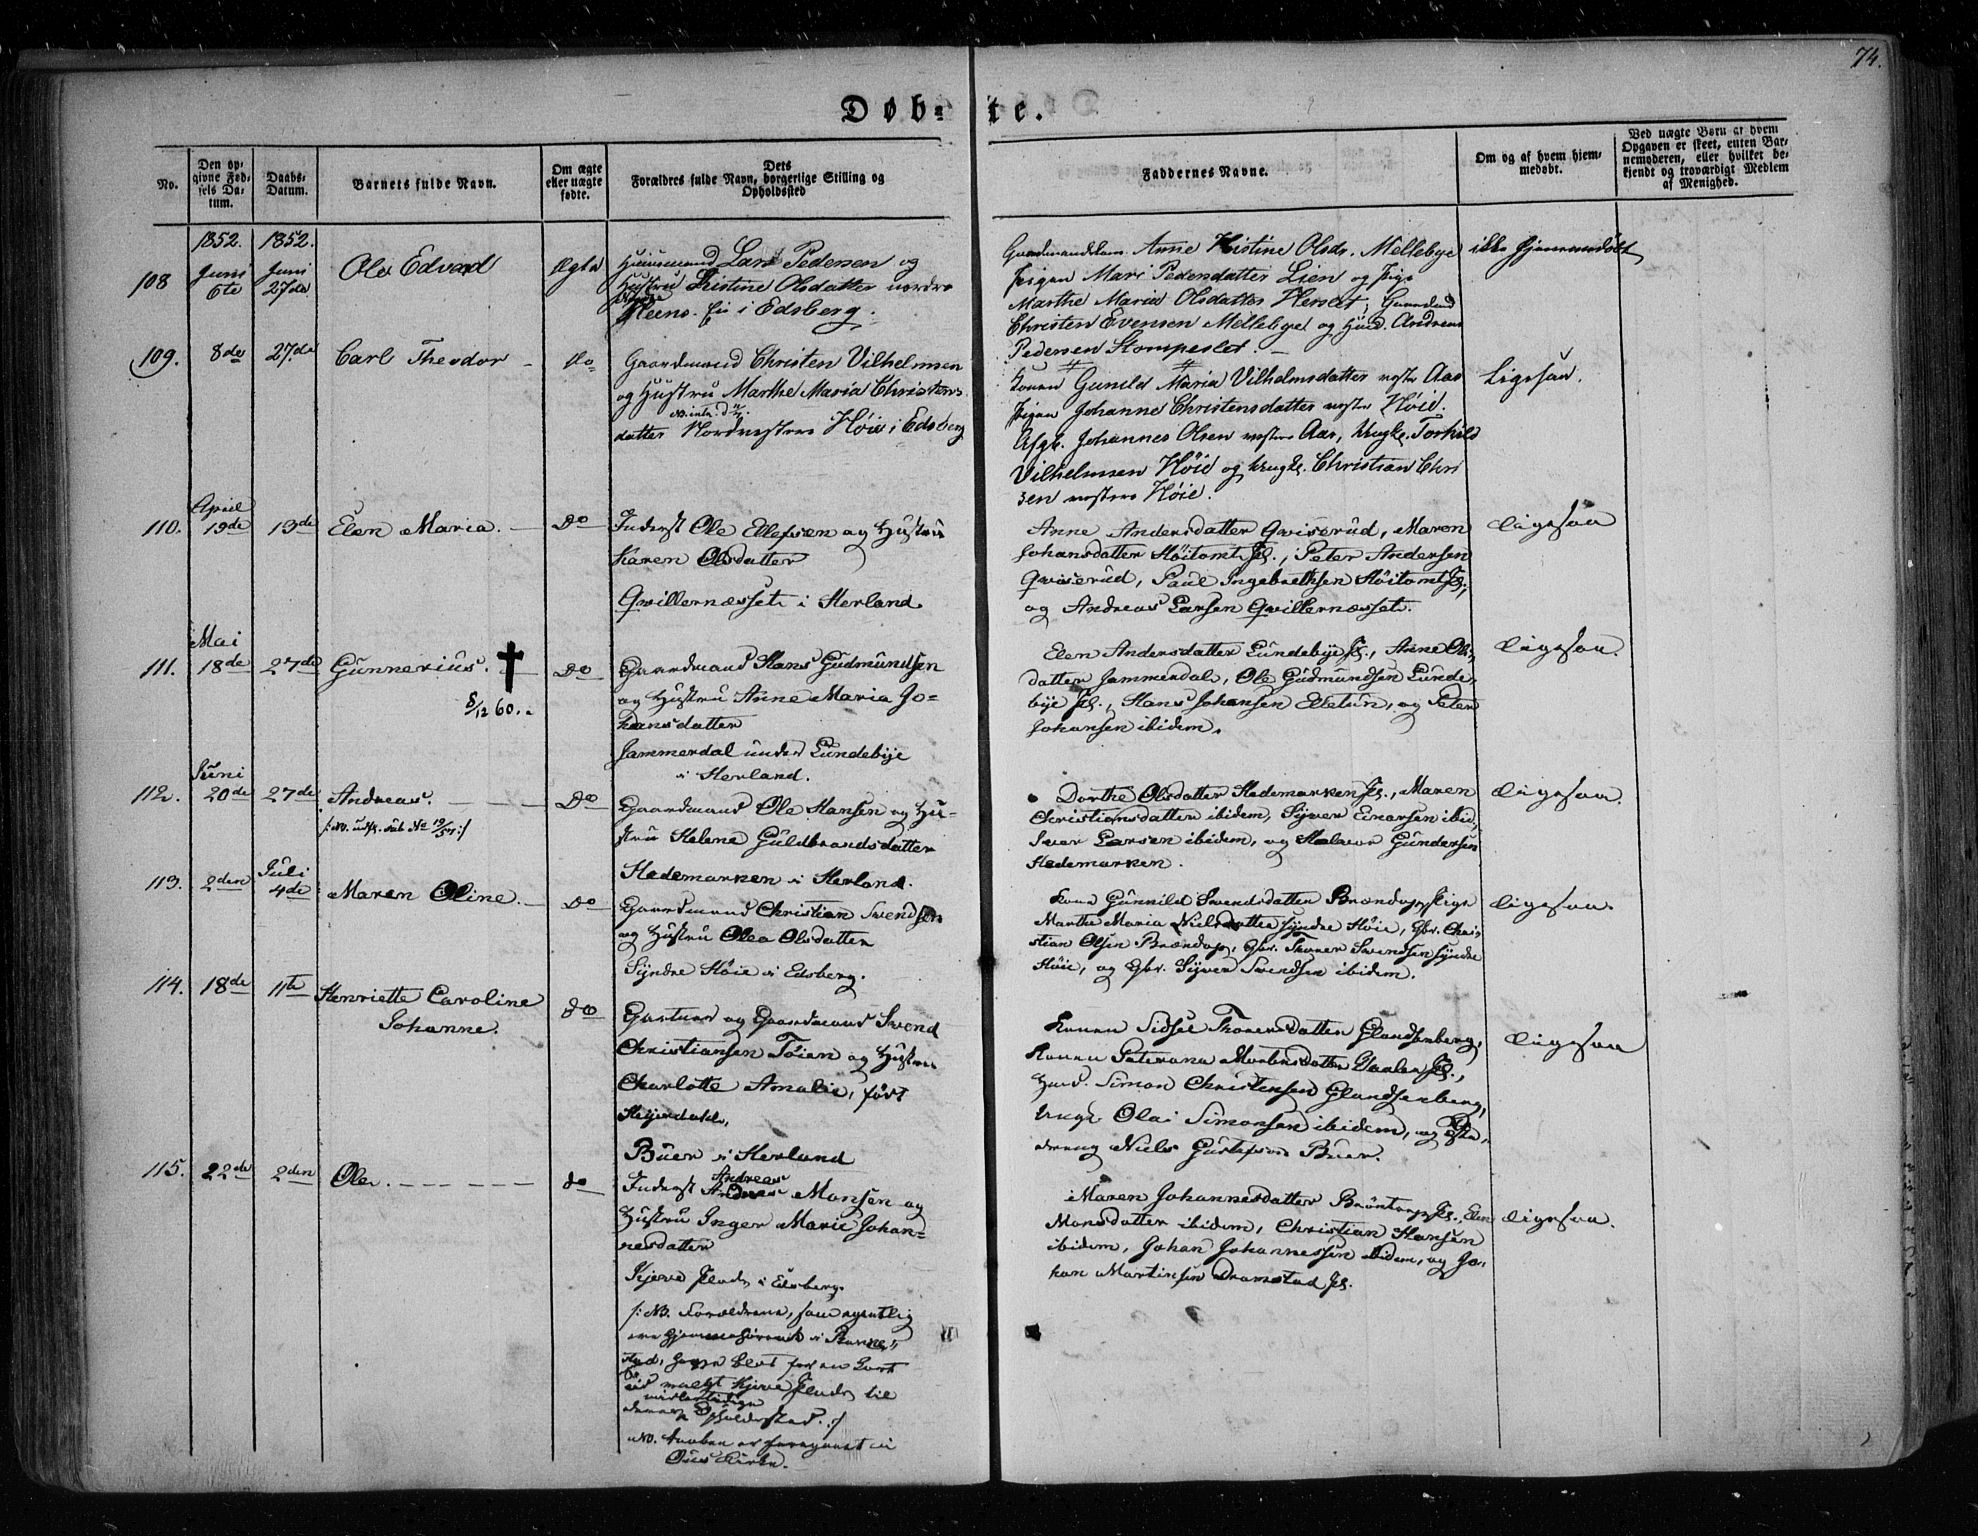 74.
Døb-te.
No.
Den op-
givne Fød-
sels Da-
tum.
Daabs-
Datum.
Barnets fulde Navn.
Om ægte
eller uægte
fødte.
Dets
Forældres fulde Navn, borgerlige Stilling og
Opholdssted
Faddernes Navne.
Om og af hvem hjem-
medøbt.
Ved uægte Børn at hvem
Opgaven er skeet, enten Bar-
nemoderen, eller hvilket be-
kjendt og troværdigt Medlem
af Menighed.
1852. 1852.
108 Juni 6te Juni 27de Ole Edvard Ægte
Huusmand Lars Pedersen og
Hustru Kistine Olsdatter nordre
Heens. Eie i Edsberg.
Anne Kistine Olsdr. Mellebye
Pigen Mari Pedersdatter Lien og Pige
Marthe Maria Olsdatter Herset;
Christen Evensen Mellebye og Andreas
Pedersen
ikke hjemmedøbt
109. 8de 27de Carl Theodor Do
Gaardmand Christen Vilhelmsen
og Hustru Marthe Maria Christens-
datter Nordvestre Høie i Edsberg
Konen Gunild Maria Vilhelmsdatter vestre Aas
Pigen Johanne Christensdatter vestre Høie.
Johannes Olsen vestre Aas, Ungk. Torkild
Vilhelmsen Høie og Ungk. Christian Chri
sen vestre Høie.
Ligesaa.
110. April 19de 13de Elen Maria. Do
Inderst Ole Ellefsen og Hustru
Karen Olsdatter
Qvillernæsset i Herland.
Anne Andersdatter Qviserud, Maren
Johansdatter Høitomt Ie., Peter Andersen
Qviserud, Paul Ingebrethsen Høitomt Ie.,
og Andreas Larsen Qvillernæsset.
Ligesaa
111. Mai 18de 27de Gunnerius. † Do
8/12 60.
Gaardmand Hans Gudmundsen
og Hustru Anne Maria Jo-
hansdatter
Jammerdal under Lundebye
i Herland.
Elen Andersdatter Lundebye Ie., Anne Ols-
datter Jammerdal, Ole Gudmundsen Lunde-
bye Ie., Hans Johansen Elletun, og Peter
Johansen ibidem.
Ligesaa.
112. Juni 20de 27de Andreas. Do
Gaardmand Ole Hansen og Hu-
stru Helene Guldbrandsdatter
Hedemarken i Herland.
Dorthe Olsdatter Hedemarken Ie., Maren
Christiansdatter ibidem, Syver Einersen ibid,
Iver Larsen ibidem, og Halvor Gundersen
Hedemarken.
Ligesaa.
113. 2den Juli 4de Maren Oline. Do
Gaardmand Christian Svendsen
og Hustru Olea Olsdatter
Syndre Høie i Edsberg.
Kone Gunnild Svendsdatter Brøndop, Pige
Marthe Maria Nielsdatter syndre Høie, Gbr. Chri-
stian Olsen Brøndop, Gbr. Thorer Svendsen syndre
Høie, og Gbr. Syver Svendsen ibidem.
Ligesaa.
114. 18de 11te Henriette Caroline
Johanne. do
og Gaardmand Svend
Christiansen Tøien og Hustru
Charlotte Amalie, født
Heyerdahl,
Buer i Herland
Konen Sidsel Thoresdatter Glendsenberg,
Konen Peterana Mortensdatter
Simon Christensen Glendsenberg,
Ungk. Olai Simonsen ibidem, og
Niels Gustafsen Buer.
Ligesaa
115. 22de 2den Ole. do
Andreas
Inderst Andreas Monsen og
Hustru Inger Marie Johan-
nesdatter
Kjeve i Edsberg.
/: NB. Forældrene, som egentlig
ere hjemmehørende i
stad, have blot for en kort
Tid valgt Kjeve til
midlertidige
deres Opholdssted. :/
NB. Daaben er foregaaet i
Kirke.
Maren Johannesdatter Brøntorp Ie., Elen
Monsdatter ibidem, Christian Hansen
ibidem, Johan Johannessen ibidem, og Jo-
han Martinsen Dramstad Ie.
Ligesaa.